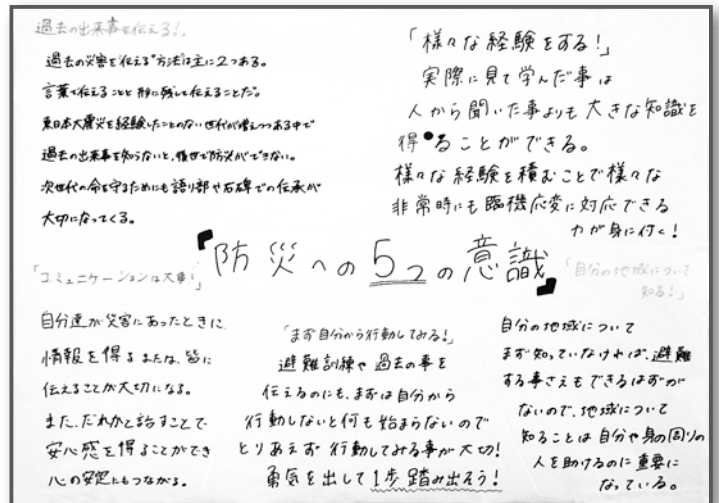 過去の出来事を伝える!」
過去の災害を伝える方法は主に2つある。
言葉で伝えることと形に残して伝えることだ。
東日本大震災を経験したことのない世代が増えつつある中で
過去の出来事を知らないと、後世で防災ができない。
次世代の命を守るためにも語り部や石碑での伝承が
大切になってくる。
「様々な経験をする!」
実際に見て学んだ事は
人から聞いた事よりも大きな知識を
得ることができる。
様々な経験を積むことで様々な
非常時にも臨機応変に対応できる
力が身に付く!
『防災への5つの意識』
「コミュニケーションは大事!」
自分達が災害にあったときに
情報を得るまたは、皆に
伝えることが大切になる。
また、だれかと話すことで
安心感を得ることができ
心の安定にもつながる。
「まず自分から行動してみる!」
避難訓練や過去の事を
伝えるのにも、まずは自分から
行動しないと何も始まらないので
とりあえず行動してみる事が大切!
勇気を出して1歩踏み出そう!
「自分の地域について
知る!」
自分の地域について
まず知っていなければ、避難
する事さえもできるはずが
ないので、地域について
知ることは自分や身の周りの
人を助けるのに重要に
なっている。